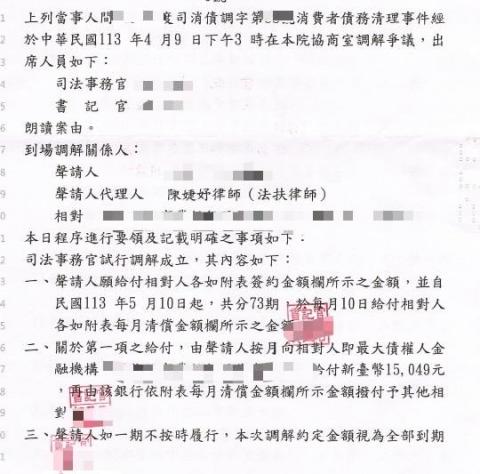 上列當事人間 度司消債調字第 消費者債務清理事件經
於中華民國113 年4 月9 日下午3 時在本院協商室調解爭議,出
席人員如下:
司法事務官
書記官
朗讀案由。
到場調解關係人:
聲請人
聲請人代理人 陳婕妤律師(法扶律師)
相對
本日程序進行要領及記載明確之事項如下:
司法事務官試行調解成立,其內容如下:
一、聲請人願給付相對人各如附表簽約金額欄所示之金額,並自
民國113 年5 月10日起,共分73期,於每月10日給付相對人
各如附表每月清償金額欄所示之金
二、關於第一項之給付,由聲請人按月向相對人即最大債權人金
融機構 給付新臺幣15,049元
,再由該銀行依附表每月清償金額欄所示金額撥付予其他相
對
三、聲請人如一期不按時履行,本次調解約定金額視為全部到期